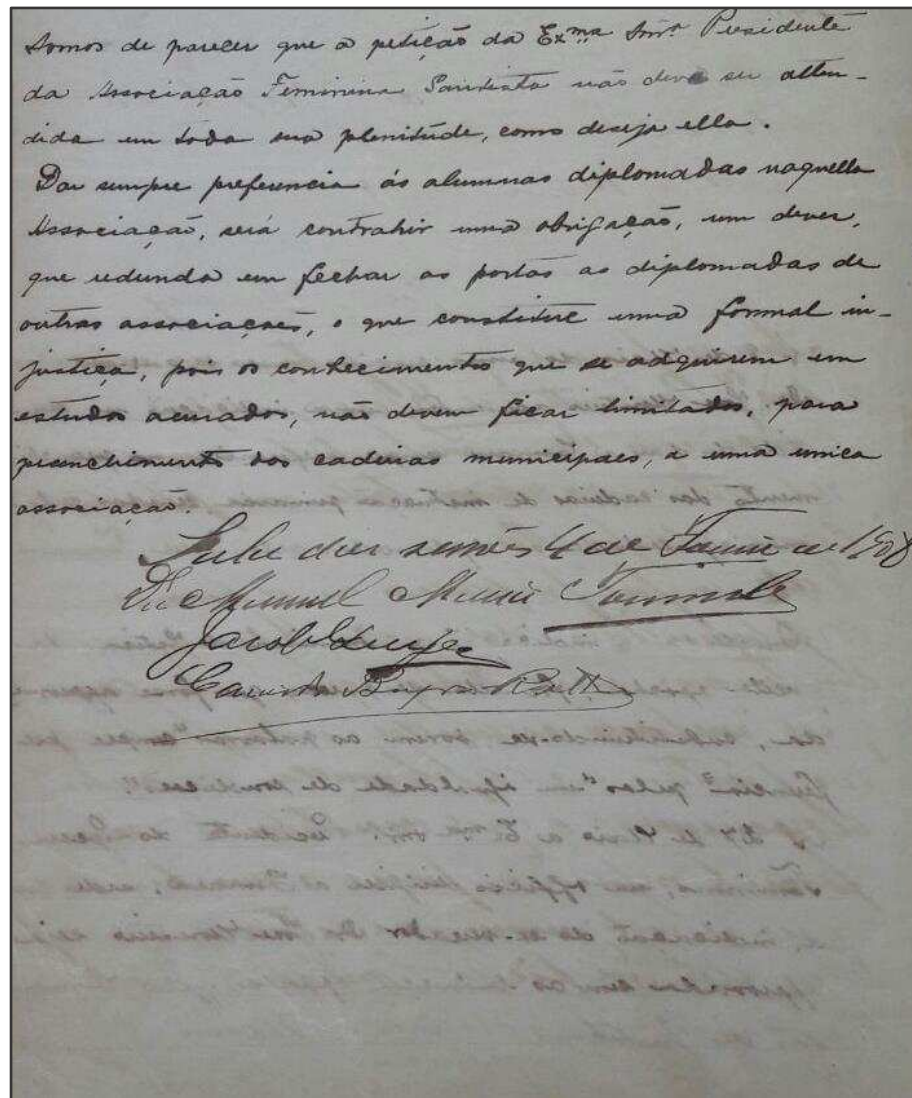 Somos de parecer que a petição da Exma Snrª Presidente
da Associação Feminina Santista não deve ser atten-
dida em toda sua plenitude, como deseja ella.
Dar sempre preferencia ás alumnas diplomadas naquella
Associação, será contrahir uma obrigação, um dever,
que redunda em fechar as portas as diplomadas de
outras associações, o que constitue uma formal in-
justiça, pois os conhecimentos que se adquirem em
estudos acurados, não devem ficar limitados, para
preenchimento das cadeiras municipaes, a uma unica
associação.
Sala das sessões 4 de de 1908
Dr Manuel Maria Tourinho
Jacob
Carvisto Bueno